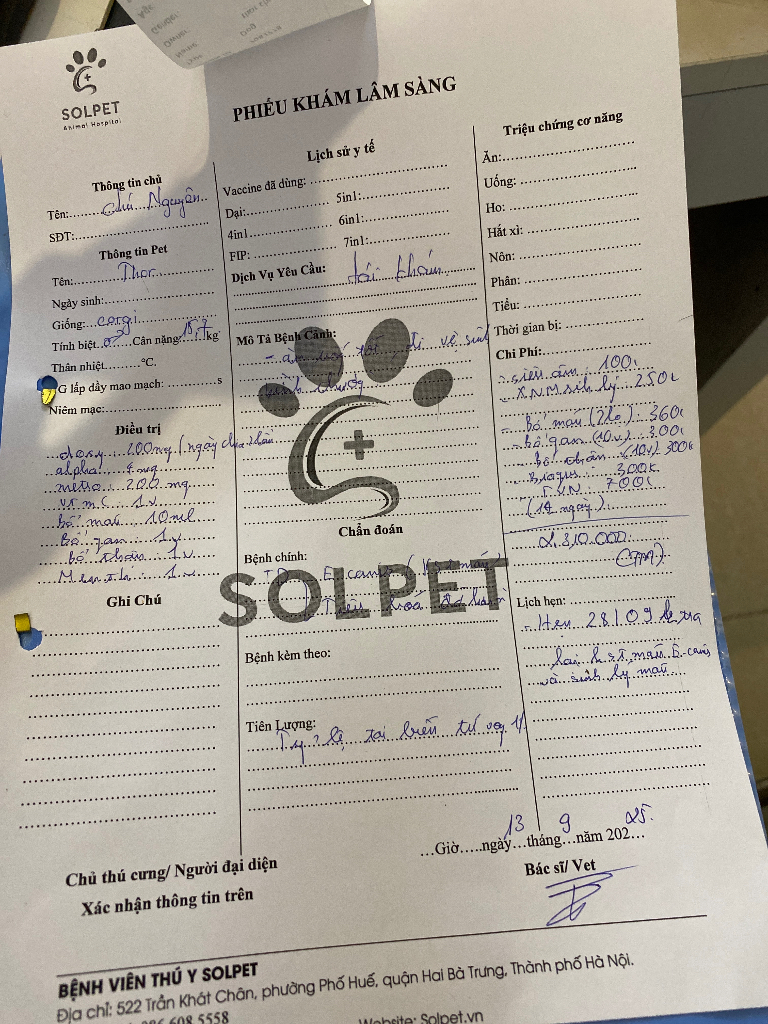 SOLPET
Animal Hospital
PHIẾU KHÁM LÂM SÀNG
Thông tin chủ
Tên: Chú Nguyên
SĐT:
Thông tin Pet
Tên: Thor
Ngày sinh:
Giống: corgi
Tính biệt ♂ Cân nặng: 15,7 kg
Thân nhiệt °C.
G lấp đầy mao mạch: s
Niêm mạc:
Điều trị
doxy: 200mg / ngày
alpha: 4mg
metro: 200 mg
vtm C: 1v
bổ máu 10ml
bổ gan: 1v
bổ thận: 1v
1v
Ghi Chú
Lịch sử y tế
Vaccine đã dùng:
Dại: 5in1:
4in1 6in1:
FIP: 7in1:
Dịch Vụ Yêu Cầu: tái khám
Mô Tả Bệnh Cảnh:
- ăn uống tốt, đi vệ sinh
bình thường
Chẩn đoán
Bệnh chính:
TD: E.canis
SOLPET
Bệnh kèm theo:
Tiên Lượng:
Tỷ lệ tai biến tử vong
Triệu chứng cơ năng
Ăn:
Uống:
Ho:
Hắt xì:
Nôn:
Phân:
Tiểu:
Thời gian bị:
Chi Phí:
- siêu âm: 100k
- XNM sinh lý: 250k
- bổ máu (2lo): 360k
- bổ gan (10v): 300k
- bổ thận (10v) 300k
300k
700k
(14 ngày)
2.310.000
(TM)
Lịch hẹn:
- Hẹn 28/09 kiểm tra
lại máu E-canis
và sinh lý máu
Giờ.....ngày 13 tháng 9 năm 2025.
Chủ thú cưng/ Người đại diện
Xác nhận thông tin trên
Bác sĩ/ Vet
BỆNH VIỆN THÚ Y SOLPET
Địa chỉ: 522 Trần Khát Chân, phường Phố Huế, quận Hai Bà Trưng, Thành phố Hà Nội.
608 5558
Website: Solpet.vn